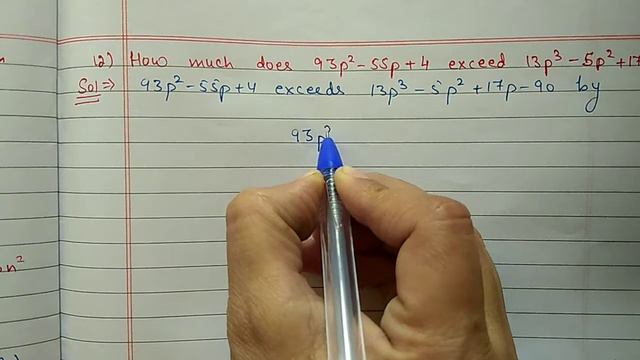 12) How much does 93p² - 55p + 4 exceed 13p³ - 5p² + 17
Sol ⇒ 93p² - 55p + 4 exceeds 13p³ - 5p² + 17p - 90 by
93p²
n²